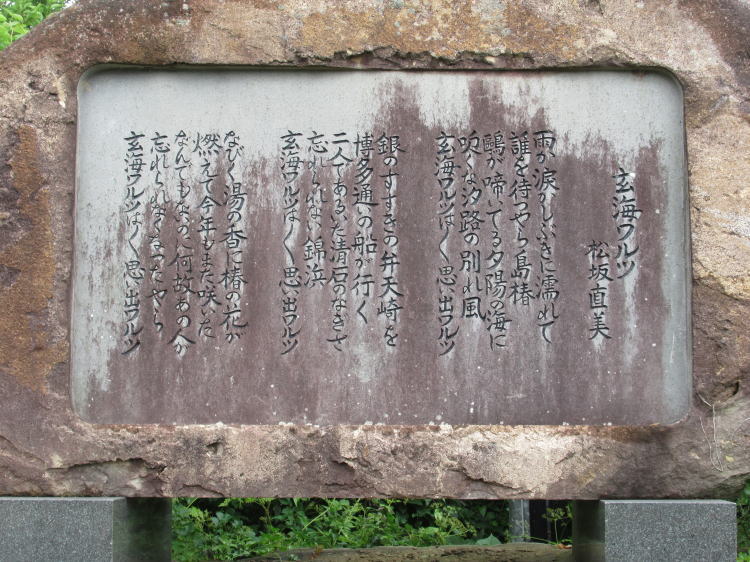 玄海ワルツ
松坂直美
雨か涙かしぶきに濡れて
誰を待やら島椿
鷗が啼いてる夕陽の海に
吹くな汐路の別れ風
玄海ワルツは〳〵思い出ワルツ
銀のすすきの弁天崎を
博多通いの船が行く
二人であるいた清石のなぎさ
忘れられない錦浜
玄海ワルツは〳〵思い出ワルツ
なびく湯の香に椿の花が
燃えて今年もまた咲いた
なんでもないのに何故あの人が
忘れられなくなったやら
玄海ワルツは〳〵思い出ワルツ